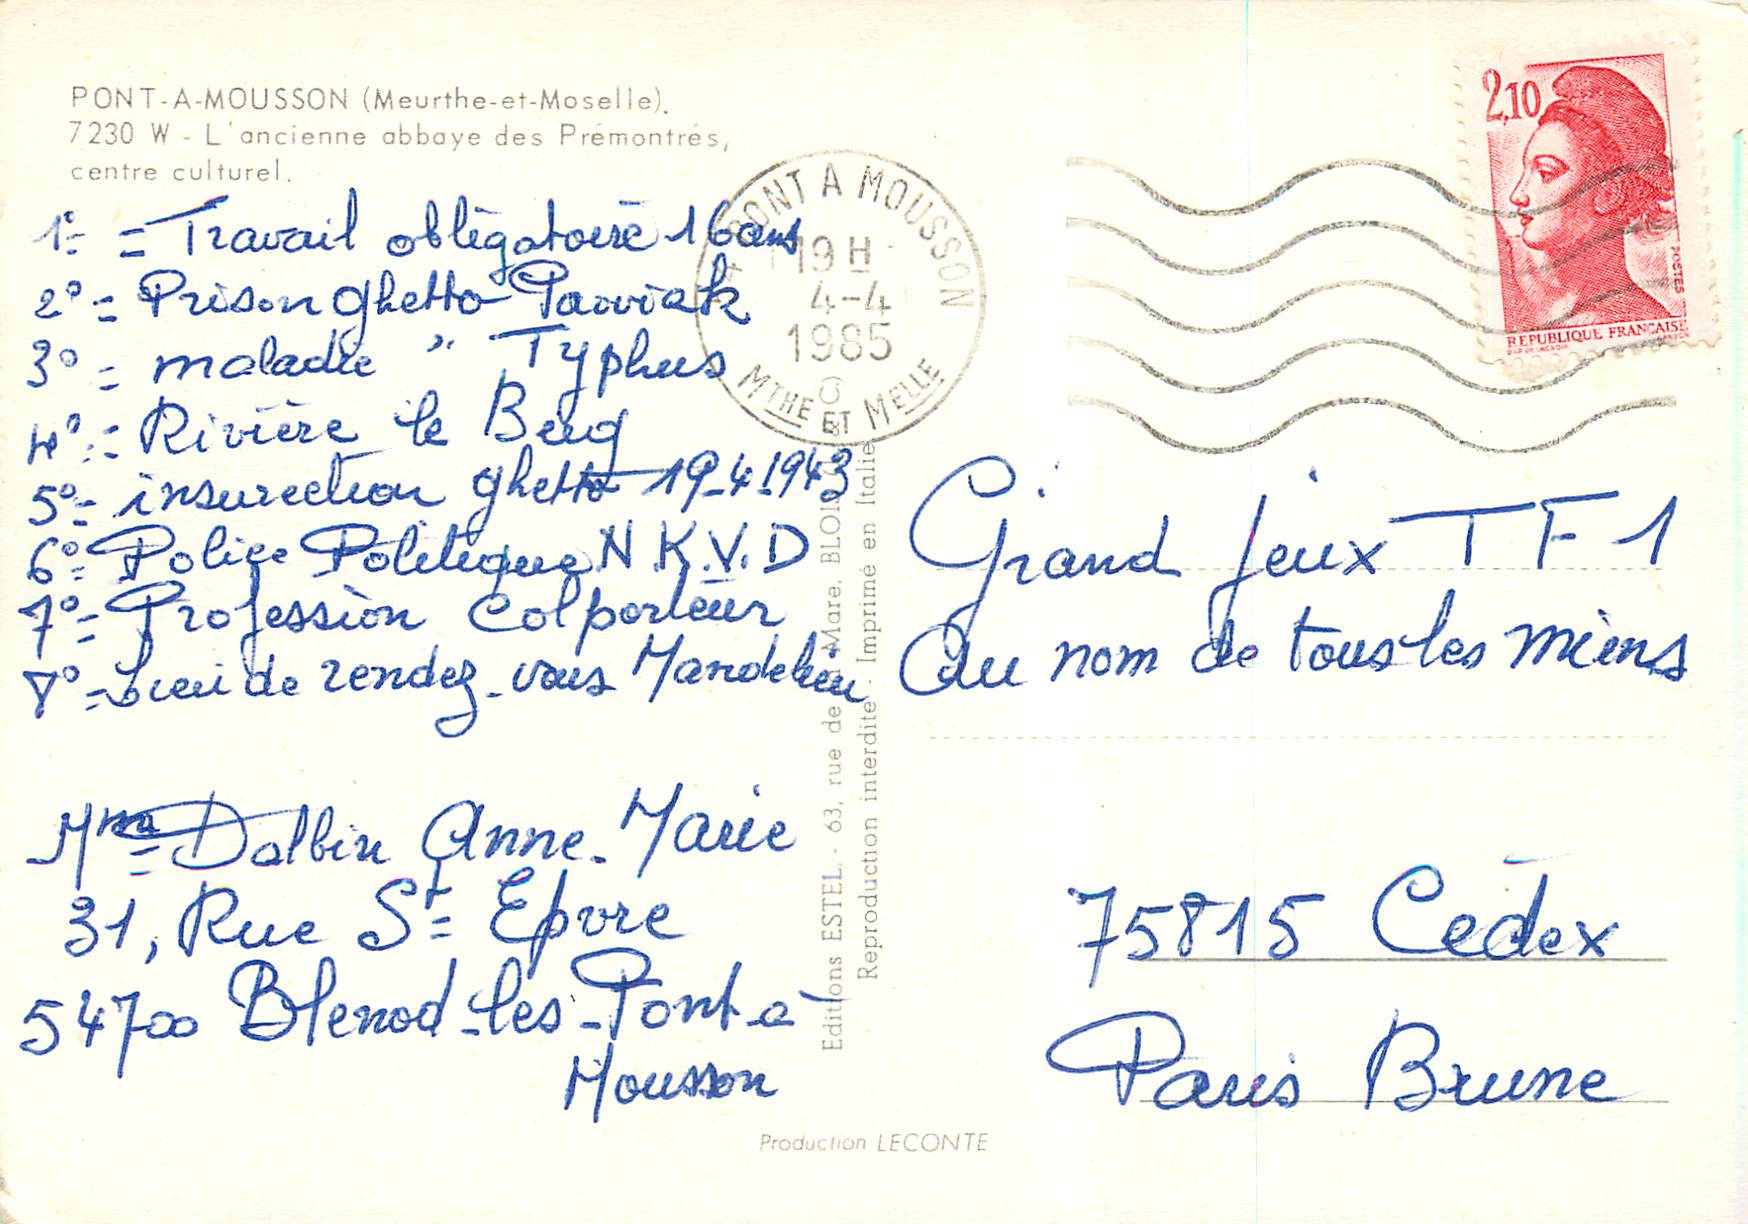 PONT-A-MOUSSON (Meurthe-et-Moselle).
7230 W - L'ancienne abbaye des Prémontrés,
centre culturel.
1° = Travail obligatoire 16 ans
2° = Prison ghetto Pawiak
3° = maladie " Typhus
4° = Rivière le Beug
5° = insurection ghetto 19.4.1943
6° = Police Politique N.K.V.D
7° = Profession colporteur
8° = Lieu de rendez-vous Mandelieu
Mme Dalbin Anne-Marie
31, Rue St Epvre
54700 Blenod-les-Pont-à
Mousson
PONT A MOUSSON
19 H
4-4
1985
MTHE ET MELLE
2,10
POSTES
REPUBLIQUE FRANÇAISE
Grand jeux TF1
Au nom de tous les miens
75815 Cedex
Paris Brune
Editions ESTEL - 63, rue de Mare, BLOIS
Reproduction interdite - Imprimé en Italie
Production LECONTE